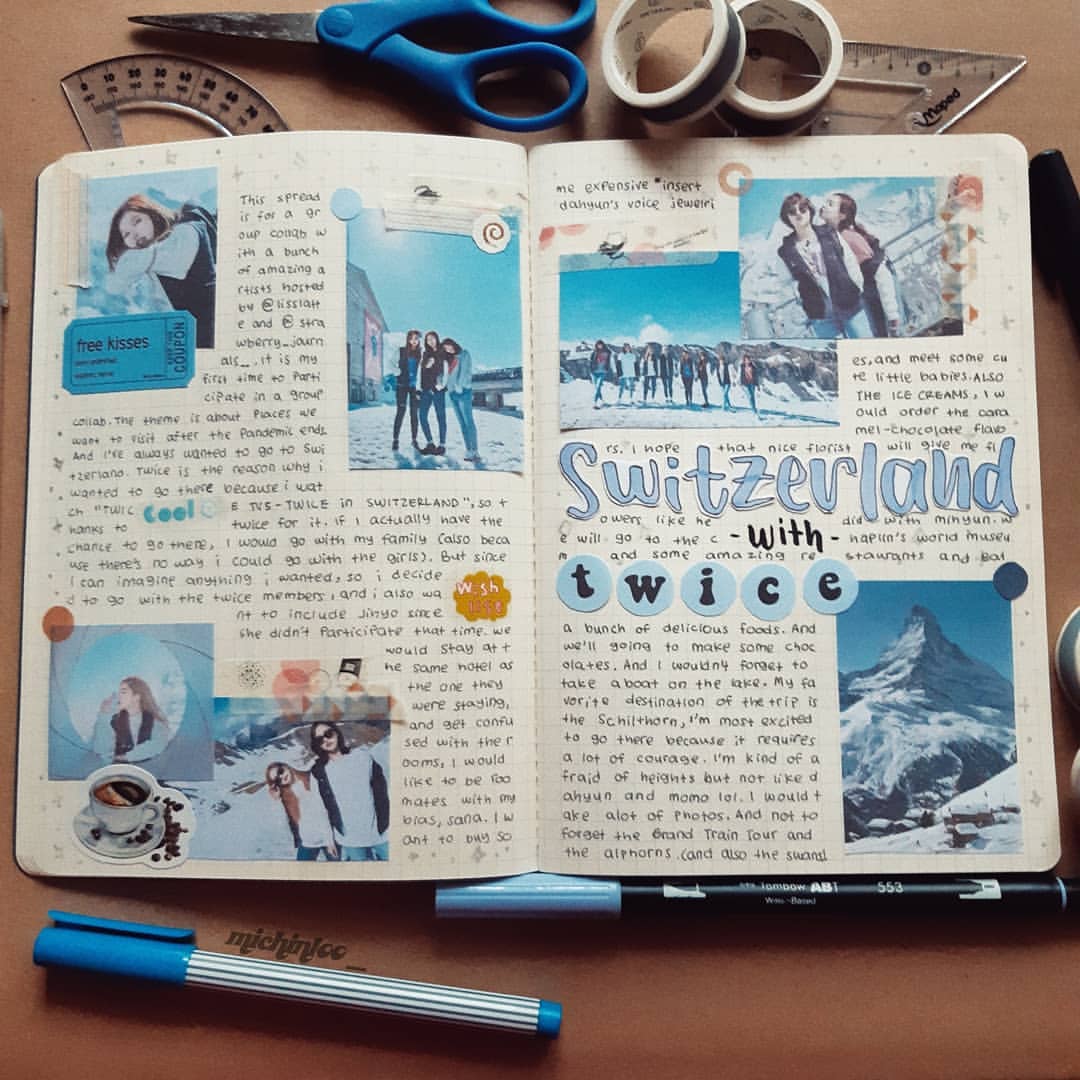 This spread
is for a gr
oup collab w
ith a bunch
of amazing a
rtists hosted
by @lisslatt
e and @ stra
wberry_journ
als_. it is my
first time to parti
cipate in a group
collab. The theme is about places we
want to visit after the Pandemic ends.
And I've always wanted to go to Swi
tzerland. Twice is the reason why i
wanted to go there because i wat
ch "TWIC cool E TV5-TWICE in SWITZERLAND", so t
hanks to twice for it. if I actually have the
chance to go there, I would go with my family (also beca
use there's no way i could go with the girls). But since
I can imagine anything i wanted, so i decide
d to go with the twice members, and i also wa
nt to include Jihyo since
she didn't participate that time. we
would stay at t
he same hotel as
the one they
were staying,
and get confu
sed with the r
ooms, I would
like to be roo
mates with my
bias, sana. I w
ant to buy so
free kisses
COUPON
wish
me expensive *insert
dahyun's voice jewelri
es, and meet some cu
te little babies. ALSO
THE ICE CREAMS, I w
ould order the cara
mel-chocolate flavo
rs. I hope that nice florist will give me fl
Switzerland
owers like he did with mihyun. w
e will go to the c -with- haplin's world museu
m and some amazing re staurants and eat
twice
a bunch of delicious foods. And
we'll going to make some choc
olates. And I wouldn't forget to
take a boat on the lake. My fa
vorite destination of the trip is
the Schilthorn, I'm most excited
to go there because it requires
a lot of courage. I'm kind of a
fraid of heights but not like d
ahyun and momo lol. I would t
ake alot of photos. And not to
forget the Grand Train Tour and
the alphorns. (and also the swans)
Maped
Tombow ABT 553
michinloo_